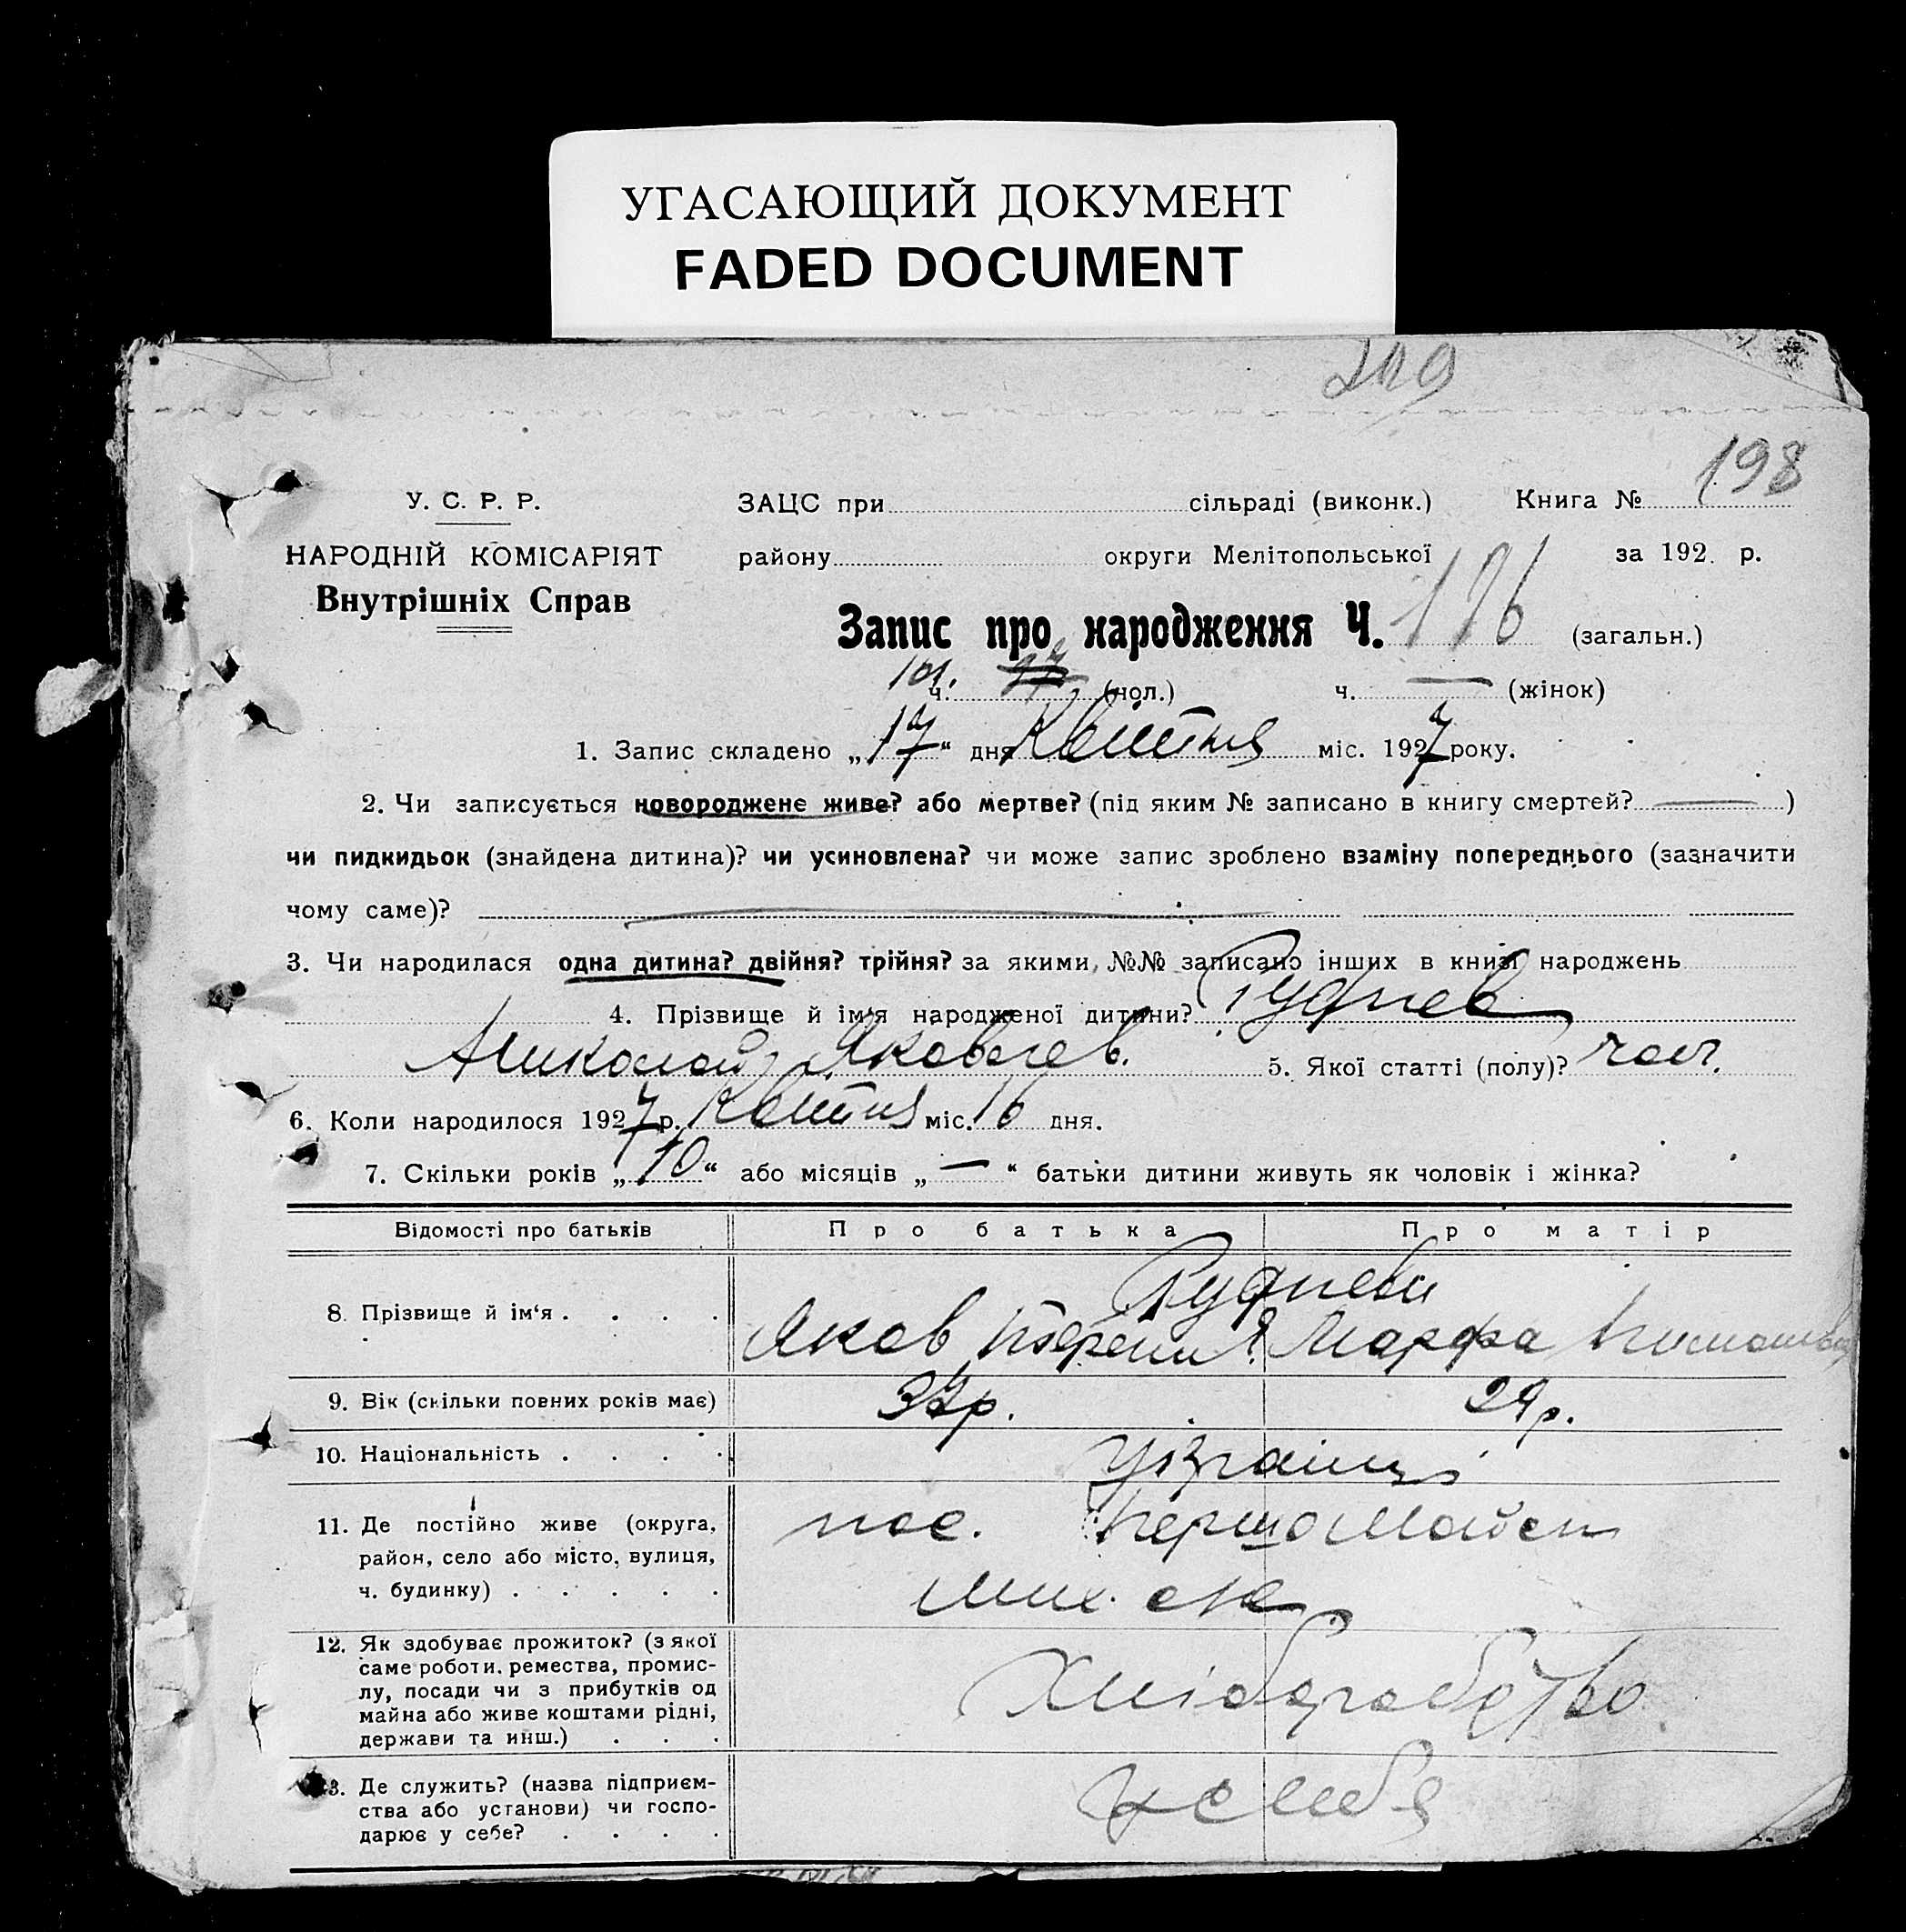 УГАСАЮЩИЙ ДОКУМЕНТ
FADED DOCUMENT
198
У. С. Р. Р.
ЗАЦС при сільраді (виконк.) Книга №
НАРОДНІЙ КОМІСАРІЯТ
району округи Мелітопольської за 192 р.
Внутрішніх Справ
Запис про народження Ч. 196 (загальн.)
101. ч. (чол.) ч. — (жінок)
1. Запис складено „17“ дня Квітня міс. 1927 року.
2. Чи записується новороджене живе? або мертве? (під яким № записано в книгу смертей? — )
чи пидкидьок (знайдена дитина)? чи усиновлена? чи може запис зроблено взаміну попереднього (зазначити
чому саме)?
3. Чи народилася одна дитина? двійня? трійня? за якими №№ записано інших в книзі народжень
4. Прізвище й ім'я народженої дитини? Руднев
Николай Яковлев. 5. Якої статті (полу)? чол.
6. Коли народилося 1927 р. Квітня міс. 16 дня.
7. Скільки років „10“ або місяців „—“ батьки дитини живуть як чоловік і жінка?
Відомості про батьків Про батька Про матір
Рудневи
8. Прізвище й ім‘я . . . . Яков Марфа
9. Вік (скільки повних років має) 32р. 29р.
10. Національність . . . . Українці
11. Де постійно живе (округа, пос. Першомайськ
район, село або місто, вулиця,
ч. будинку) . . . . . Мих.
12. Як здобуває прожиток? (з якої
саме роботи, ремества, промис-
лу, посади чи з прибутків од Хліборобство
майна або живе коштами рідні,
держави та инш.) . . .
13. Де служить? (назва підприєм-
ства або установи) чи госпо- у себя
дарює у себе? . . . .